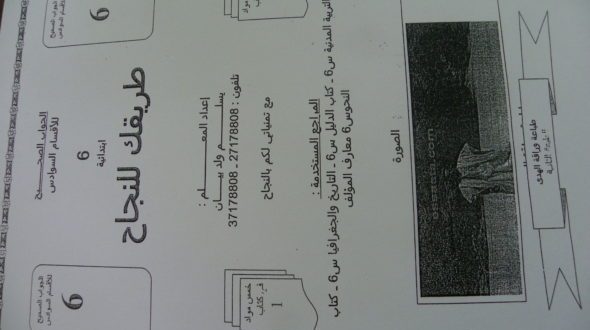 الجواب الصحيح
للأقسام السوادس
6
الجواب الصحيح
للأقسام السوادس
الجواب الصحيح
للأقسام السوادس
6
6
ابتدائية
طريقك للنجاح
إعداد المعلم :
يسلم ولد بيان
تلفون : 27178808 - 37178808
مع تمنياتي لكم بالنجاح
خمس مواد
في كتاب
1
خمس مواد
المراجع المستخدمة :
التربية المدنية س6 - كتاب الدليل س6 - التاريخ والجغرافيا س6 - كتاب
النحوس6 معارف المؤلف
الصورة :
طباعة وراقة الهدى